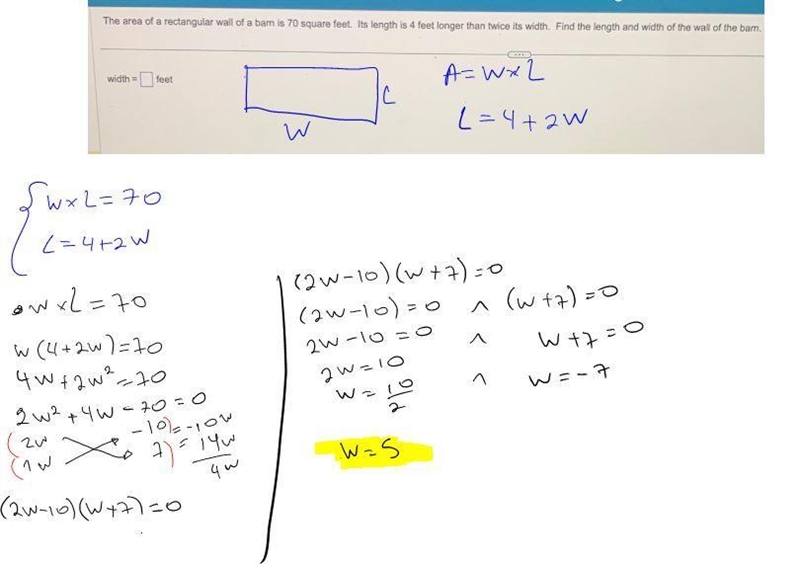 The area of a rectangular wall of a barn is 70 square feet. Its length is 4 feet longer than twice its width. Find the length and width of the wall of the barn.
width = feet
L
W
A=W×L
L=4+2W
W×L=70
L=4+2W
W×L=70
W(4+2W)=70
4W+2W²=70
2W²+4W-70=0
(2W -10)=-10W
(1W 7)=14W
4W
(2W-10)(W+7)=0
(2W-10)(W+7)=0
(2W-10)=0 ∧ (W+7)=0
2W-10=0 ∧ W+7=0
2W=10
W=10/2 ∧ W=-7
W=5